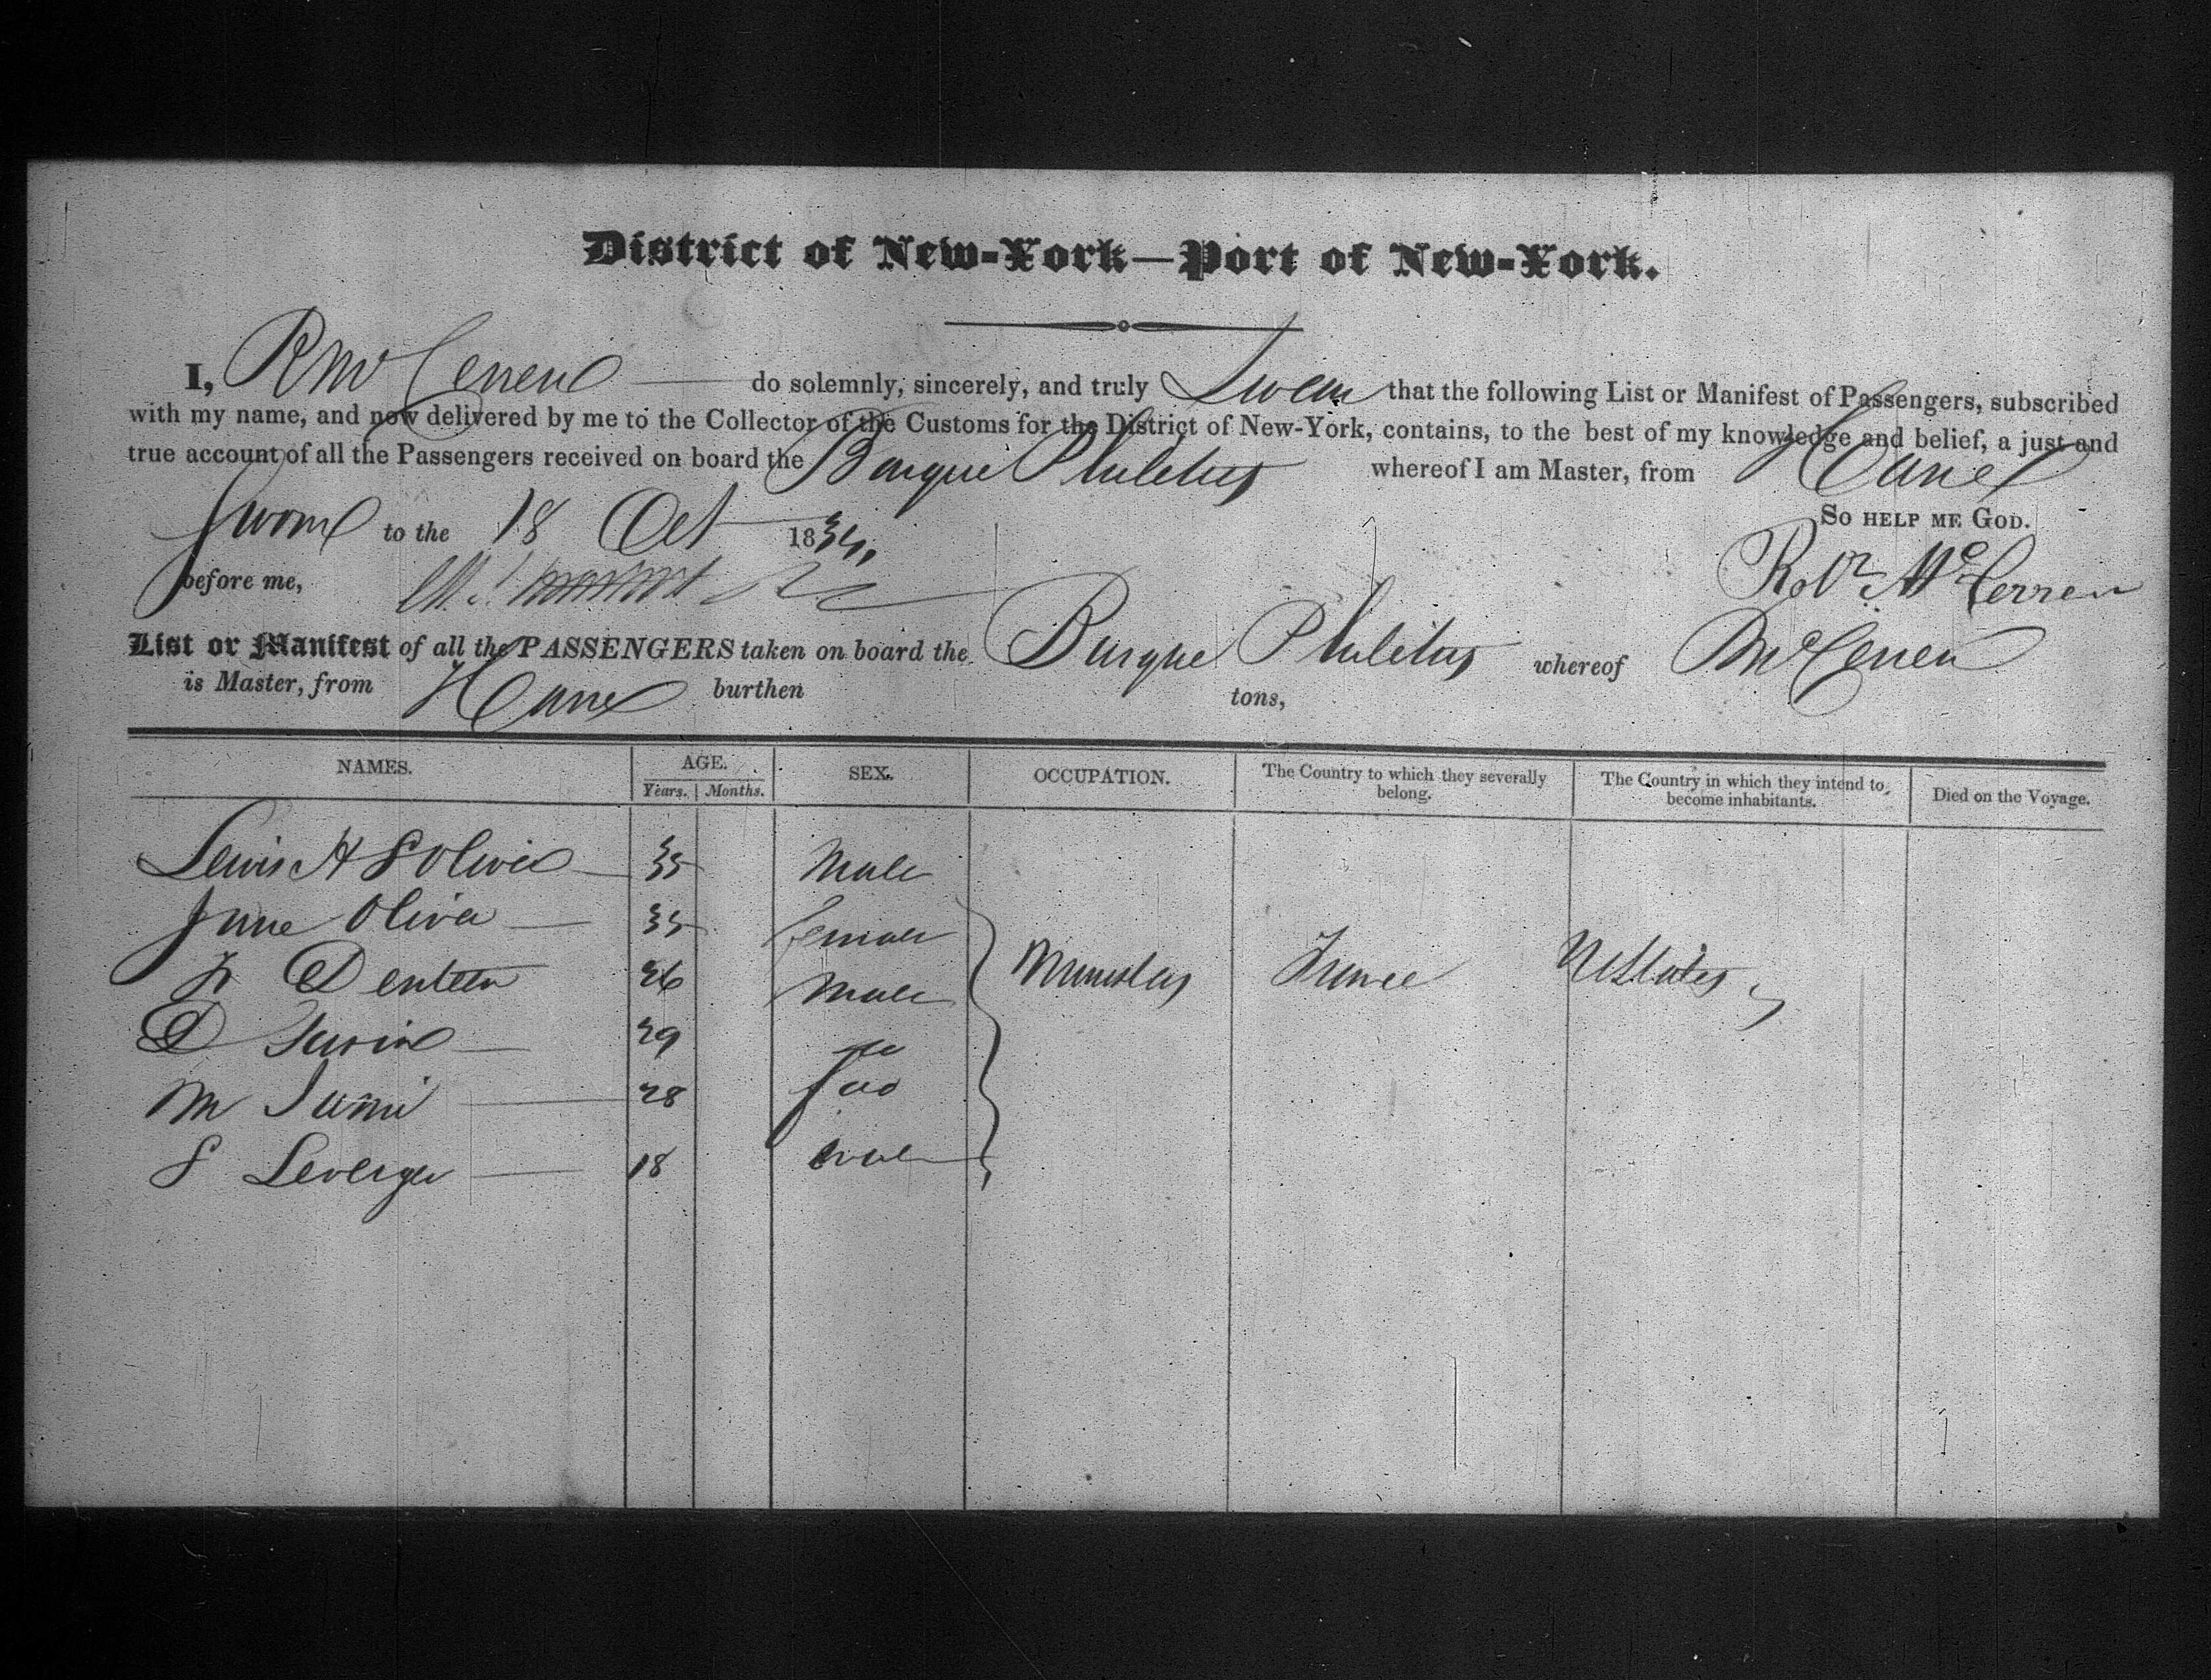 District of New-York—Port of New-York.
I, R McCerren do solemnly, sincerely, and truly Swear that the following List or Manifest of Passengers, subscribed
with my name, and now delivered by me to the Collector of the Customs for the District of New-York, contains, to the best of my knowledge and belief, a just and
true account of all the Passengers received on board the Barque Philetus whereof I am Master, from Havre
SO HELP ME GOD.
Sworn to the 18 Oct 1834.
before me,
Robt McCerren
List or Manifest of all the PASSENGERS taken on board the Barque Philetus whereof McCerren
is Master, from Havre burthen tons,
NAMES. AGE. SEX. OCCUPATION. The Country to which they severally belong. The Country in which they intend to become inhabitants. Died on the Voyage.
Years. Months.
Lewis H S Olivier 35 Male
Jane Oliver 35 female
Denteen 26 Male
D 29 do
M 28 do
S Leverger 18 Male
Ministers France U States